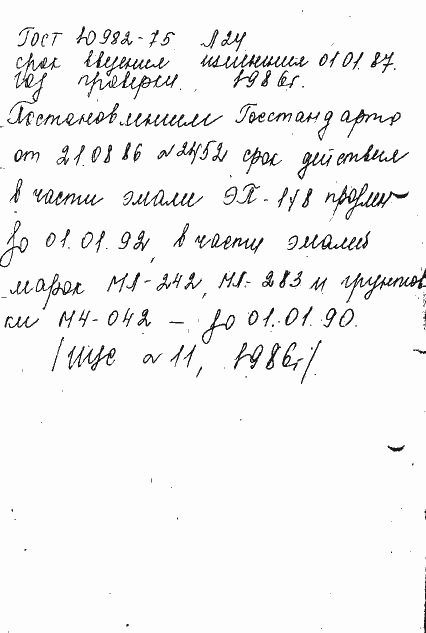 ГОСТ 10982-75 №24
срок введения изменения 01.01.87.
год проверки 1986г.
Постановлением Госстандарта
от 21.08.86 №2452 срок действия
в части эмали ЭП-148 продлить
до 01.01.92, в части эмалей
марок МЛ-242, МЛ-283 и грунтов
ки МЧ-042 — до 01.01.90.
/ИУС №11, 1986г/